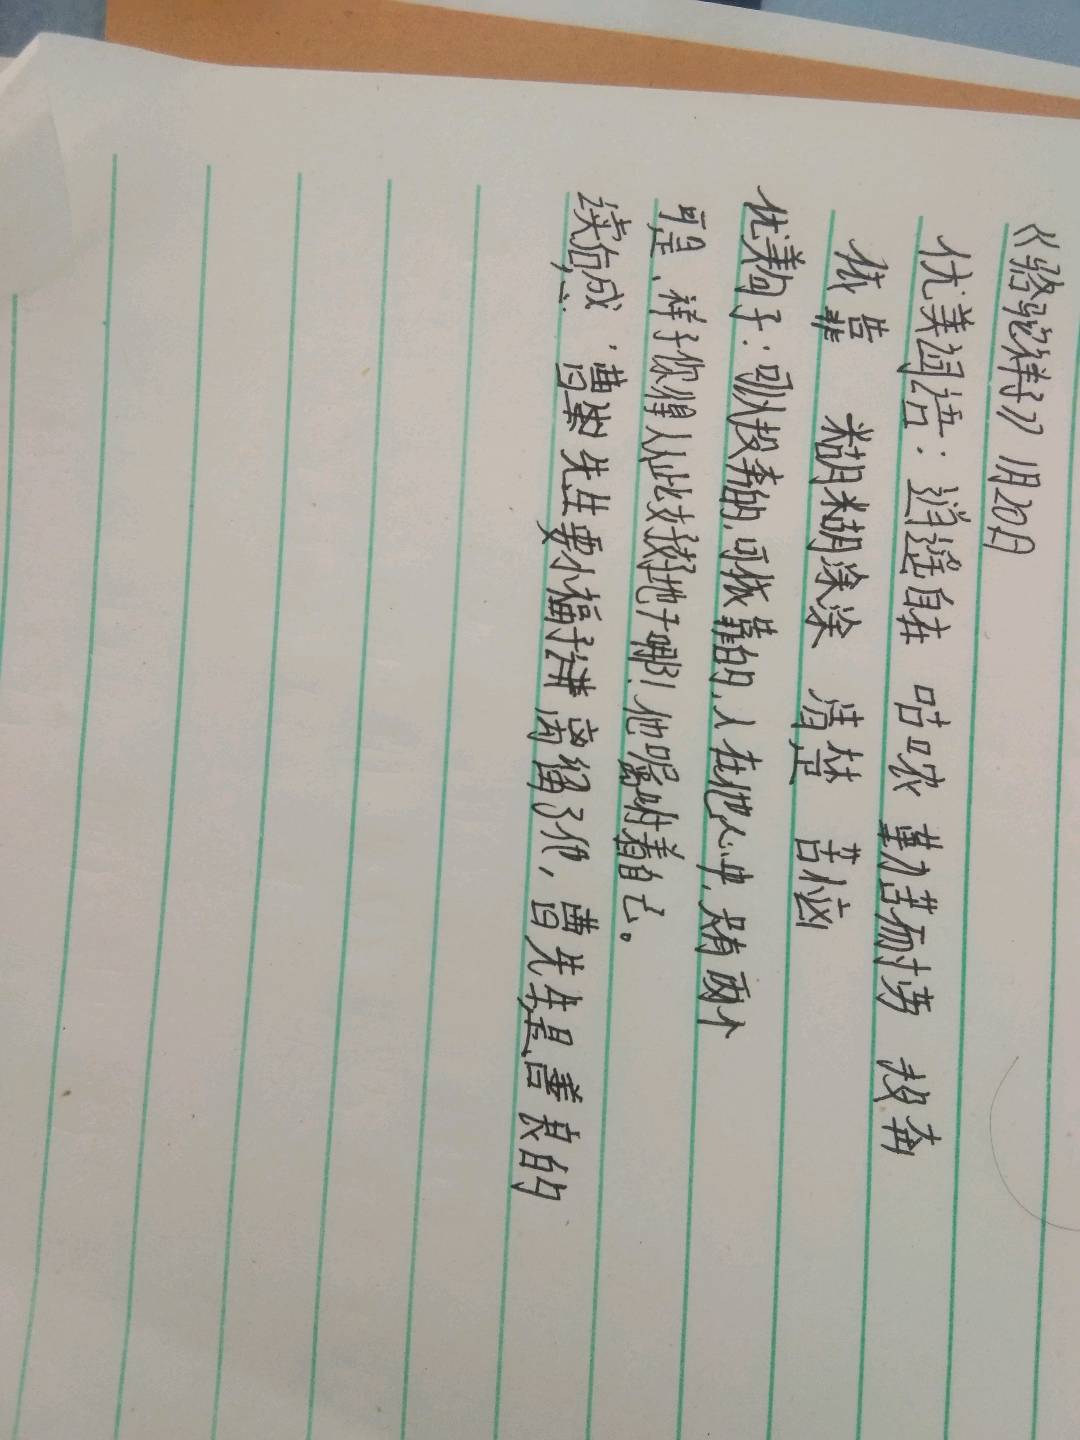 《骆驼祥子》 1月20日
优美词语：逍遥自在 咕哝 勤苦耐劳 投奔
依靠 糊糊涂涂 清楚 苦恼
优美句子：可以投奔的，可依靠的，人在他心中，只有两个
可是，祥子你得从此好好地干哪！他嘱咐着自己。
读后感：曹 先生要小福子 留了他，曹先生是善良的